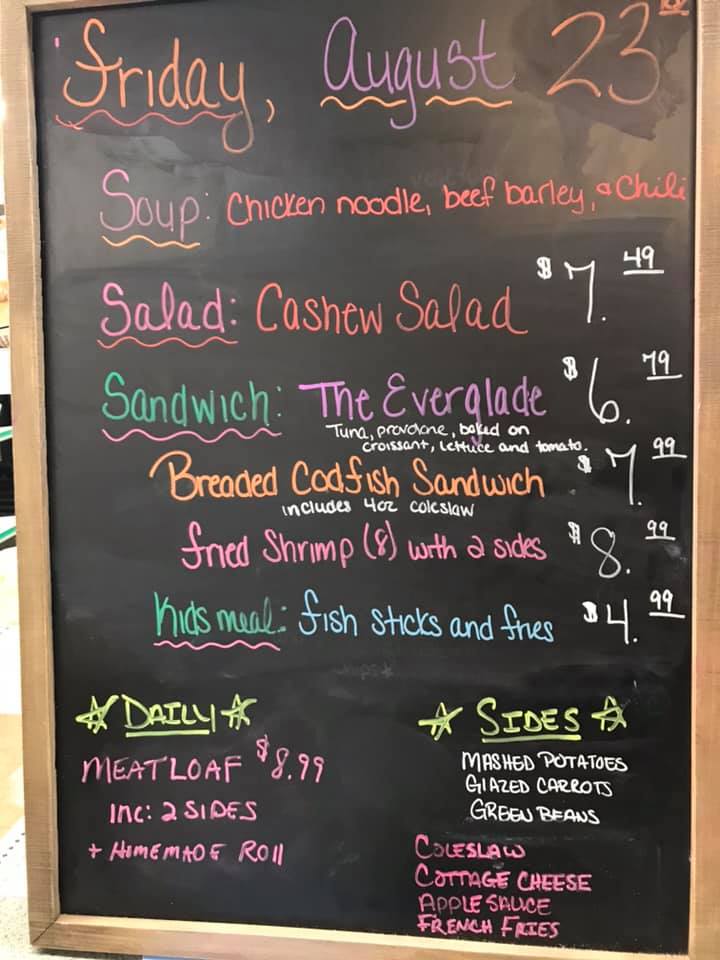 Friday, August 23rd
Soup: Chicken noodle, beef barley, & Chili
Salad: Cashew Salad $7.49
Sandwich: The Everglade $6.79
Tuna, provolone, baked on
croissant, lettuce and tomato.
Breaded Codfish Sandwich $7.99
includes 4oz coleslaw
fried Shrimp (8) with 2 sides $8.99
Kids meal: fish sticks and fries $4.99
DAILY
MEATLOAF $8.99
INC: 2 SIDES
+ HOMEMADE ROll
SIDES
MASHED POTATOES
GlAZED CARROTS
GREEN BEANS
COLESLAW
COTTAGE CHEESE
APPLE SAUCE
FRENCH FRIES